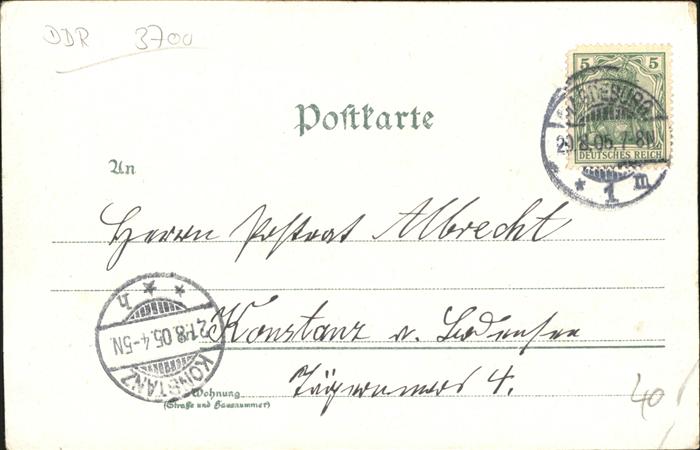 DDR 3700
5 5
MAGDEBURG
20.8.05.7-8N.
DEUTSCHES REICH
* 1 m
Postkarte
An
Herrn Postrat Albrecht
Konstanz a. Bodensee
4.
KONSTANZ
21.8.05.4-5N.
* * h
Wohnung
(Straße und Hausnummer)
40